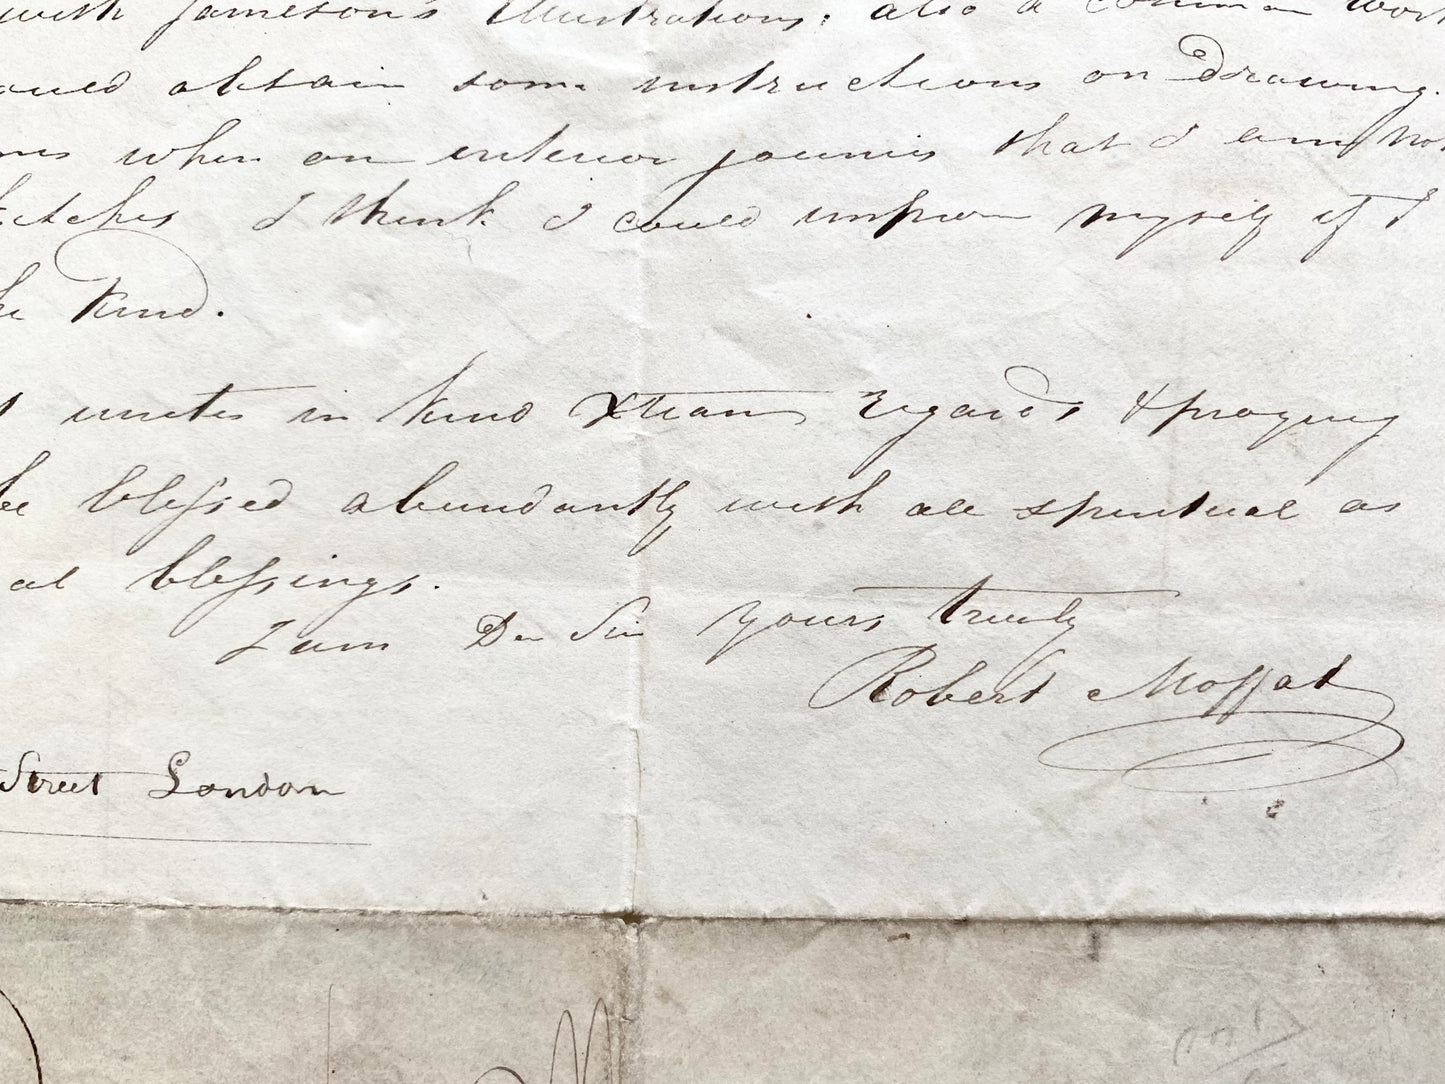 with Jameson's Illustrations; also a common
obtain some instructions on Drawing.
when on interior journies that I am not
sketches I think I could improve myself if I
kind.
unites in kind Xtian regards & praying
blessed abundantly with all spiritual as
al blessings.
I am Dr Sir yours truly
Robert Moffat
Street London